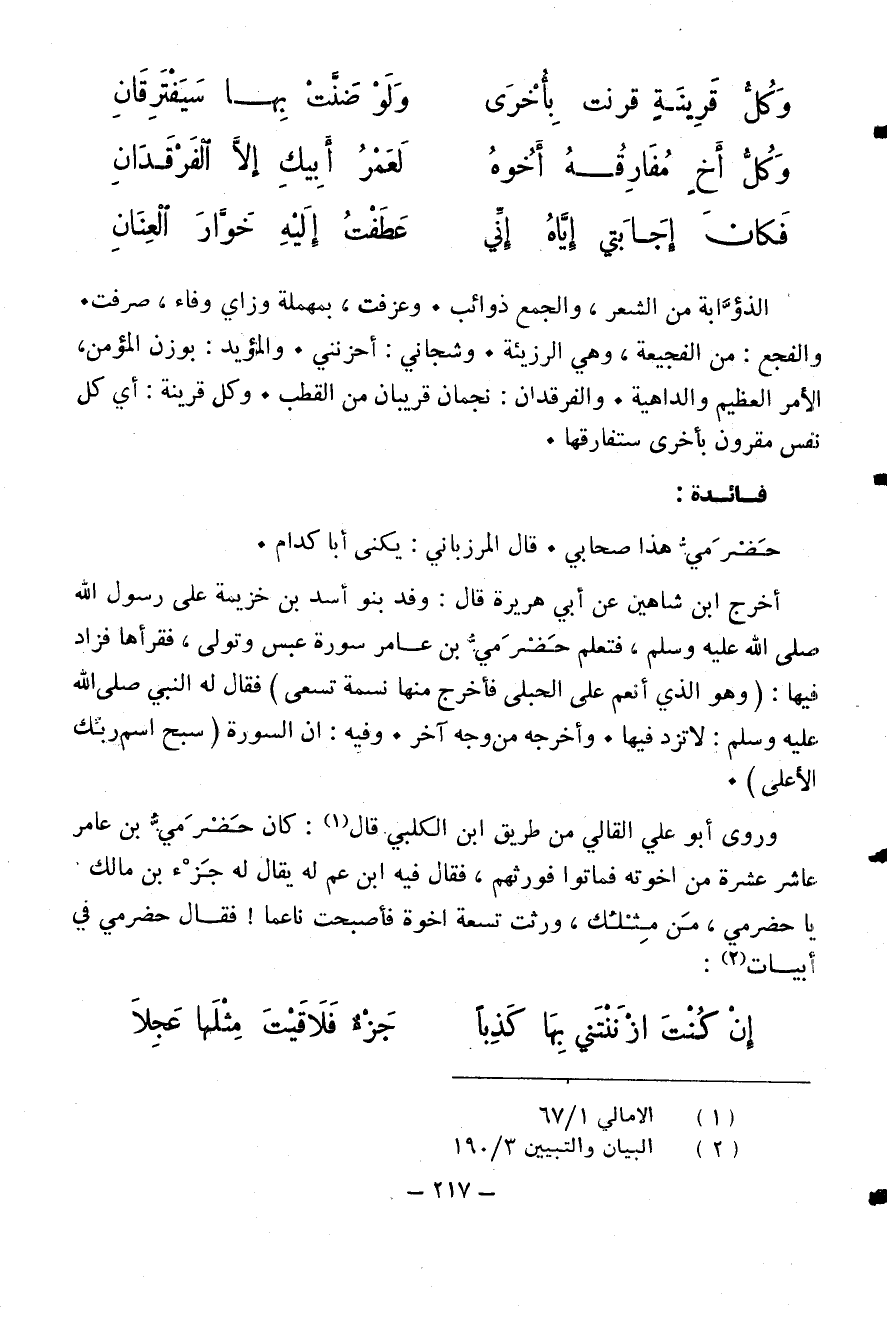 وَكُلُّ قَرِينَةٍ قرنت بِأُخْرَى وَلَوْ ضَنَّتْ بِهـــا سَيَفْتَرِقَانِ
وَكُلُّ أَخٍ مُفَارِقُـــهُ أَخُوهُ لَعَمْرُ أَبِيكِ إِلاَّ الْفَرْقَدَانِ
فَكانَ إِجَابَتِي إِيَّاهُ إِنِّي عَطَفْتُ إِلَيْهِ خَوَّارَ الْعِنَانِ
الذؤابة من الشعر ، والجمع ذوائب ٠ وعزفت ، بمهملة وزاي وفاء ، صرفت٠
والفجع : من الفجيعة ، وهي الرزيئة ٠ وشجاني : أحزنني ٠ والمؤيد : بوزن المؤمن،
الأمر العظيم والداهية ٠ والفرقدان : نجمان قريبان من القطب ٠ وكل قرينة : أي كل
نفس مقرون بأخرى ستفارقها ٠
فـائـدة :
حَضْرَميُّ هذا صحابي ٠ قال المرزباني : يكنى أبا كدام ٠
أخرج ابن شاهين عن أبي هريرة قال : وفد بنو أسد بن خزيمة على رسول الله
صلى الله عليه وسلم ، فتعلم حَضْرَميُّ بن عـامر سورة عبس وتولى ، فقرأها فزاد
فيها : ( وهو الذي أنعم على الحبلى فأخرج منها نسمة تسعى ) فقال له النبي صلى الله
عليه وسلم : لاتزد فيها ٠ وأخرجه من وجه آخر ٠ وفيه : ان السورة ( سبح اسم ربّك
الأعلى ) ٠
وروى أبو علي القالي من طريق ابن الكلبي قال(١) : كان حَضْرَميُّ بن عامر
عاشر عشرة من اخوته فماتوا فورثهم ، فقال فيه ابن عم له يقال له جَزْء بن مالك
يا حضرمي ، مَن مِثْلُك ، ورثت تسعة اخوة فأصبحت ناعما ! فقـال حضرمي في
أبيـات(٢) :
إِنْ كُنْتَ ازْنَنْتَنِي بِهَا كَذِباً جَزْءُ فَلَاقَيْتَ مِثْلَهَا عَجِلاَ
( ١ ) الامالي ٦٧/١
( ٢ ) البيان والتبيين ١٩٠/٣
– ٢١٧ –